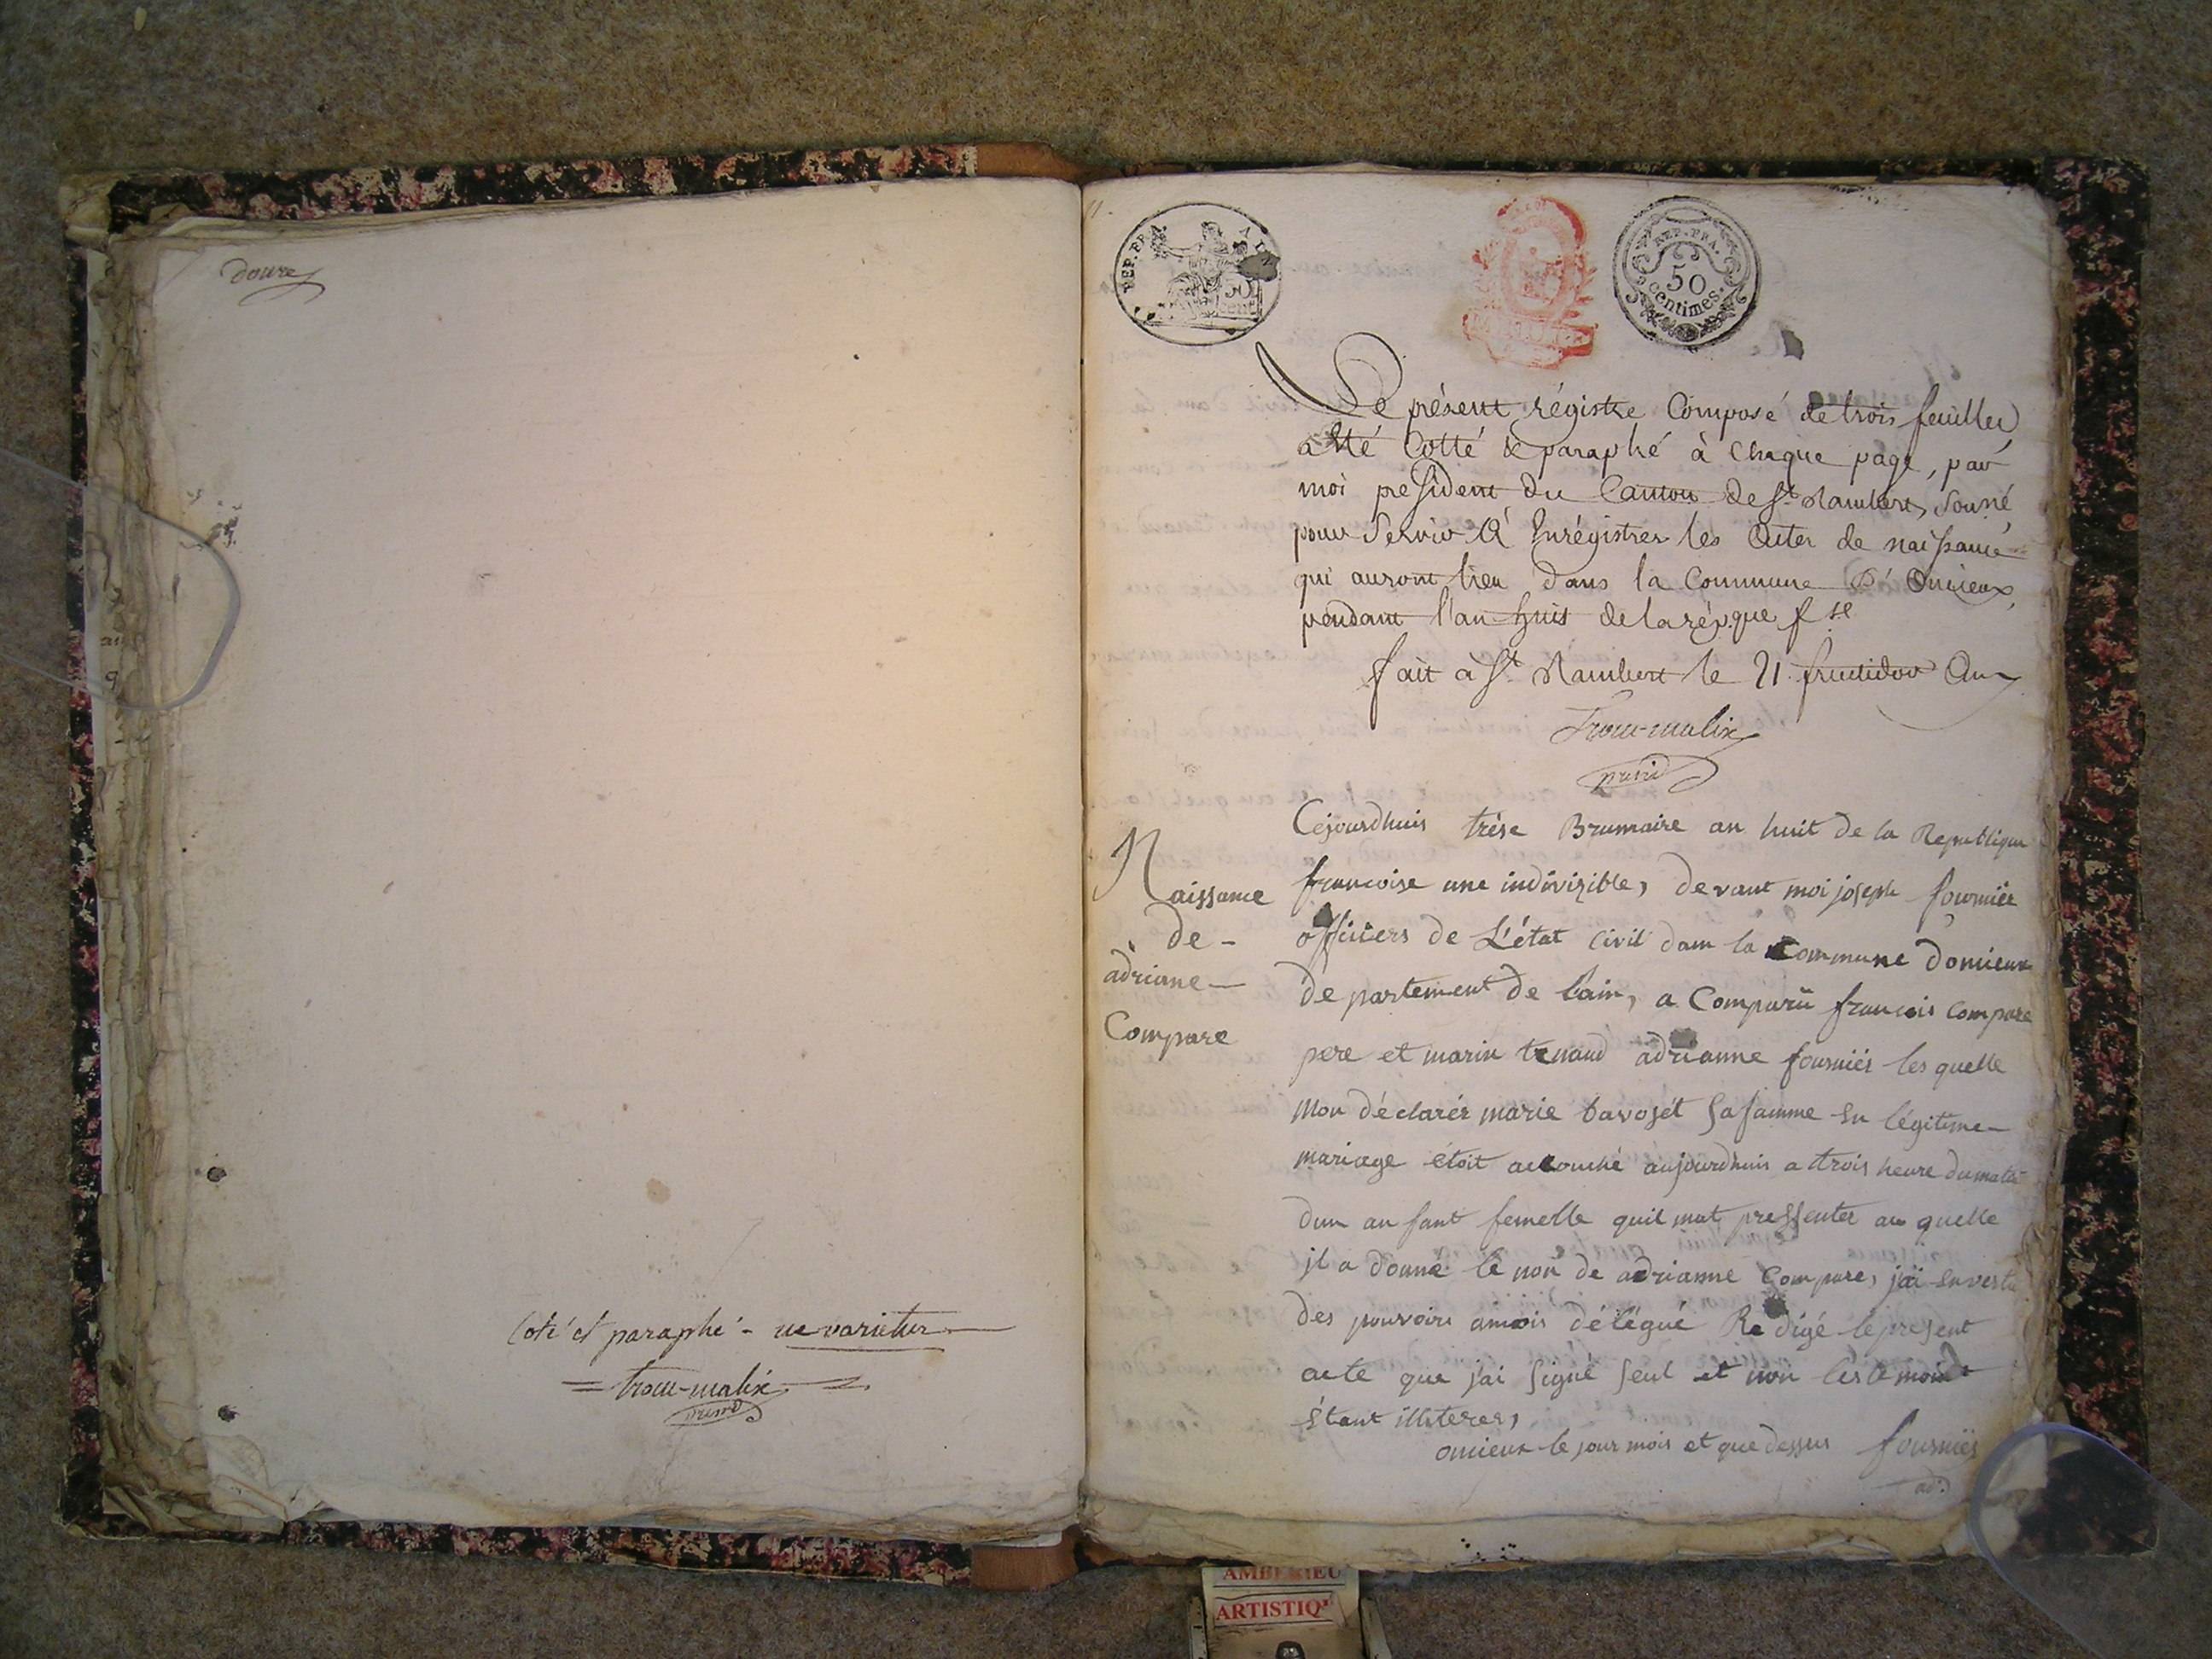 douze
Coté et paraphé - ne varietur
trocu-malix
présid
REP. FRA.
50
cent
REP. FRA.
50
centimes.
Le présent régistre Composé de trois feuilles
a été Cotté & paraphé à Chaque page, par
moi president du Canton de St. Rambert, Soussé
pour Servir à Enrégistrer les Actes de naissance
qui auront lieu dans la Commune D'Oncieux
pendant l'an huit de la rép.que f.se
fait à St. Rambert le 21 fructidor An 7
trocu-malix
présid
Naissance
de -
adriane -
Compare
Cejourdhuis trése Brumaire an huit de la Republique
francoise une indivizible, devant moi joseph fournier
officiers de L'état civil dans la Commune doncieux
département de lain, a Comparü francois compare
pere et marin tenaud adrianne fourniér les quelle
mon déclarér marie savosét sa famme en légitime
mariage étoit accouché aujourdhuis a trois heure du matin
dun an fant femelle quil mat pressenter au quelle
il a donné le non de adrianne Compare, jai en vertu
des pouvoirs amois délégué Redigé le present
acte que jai signé seul et non les temoins
étant illiteres,
oncieux le jour mois et que dessus fourniér
ad.
an
9
AMBERIEU
ARTISTIQ